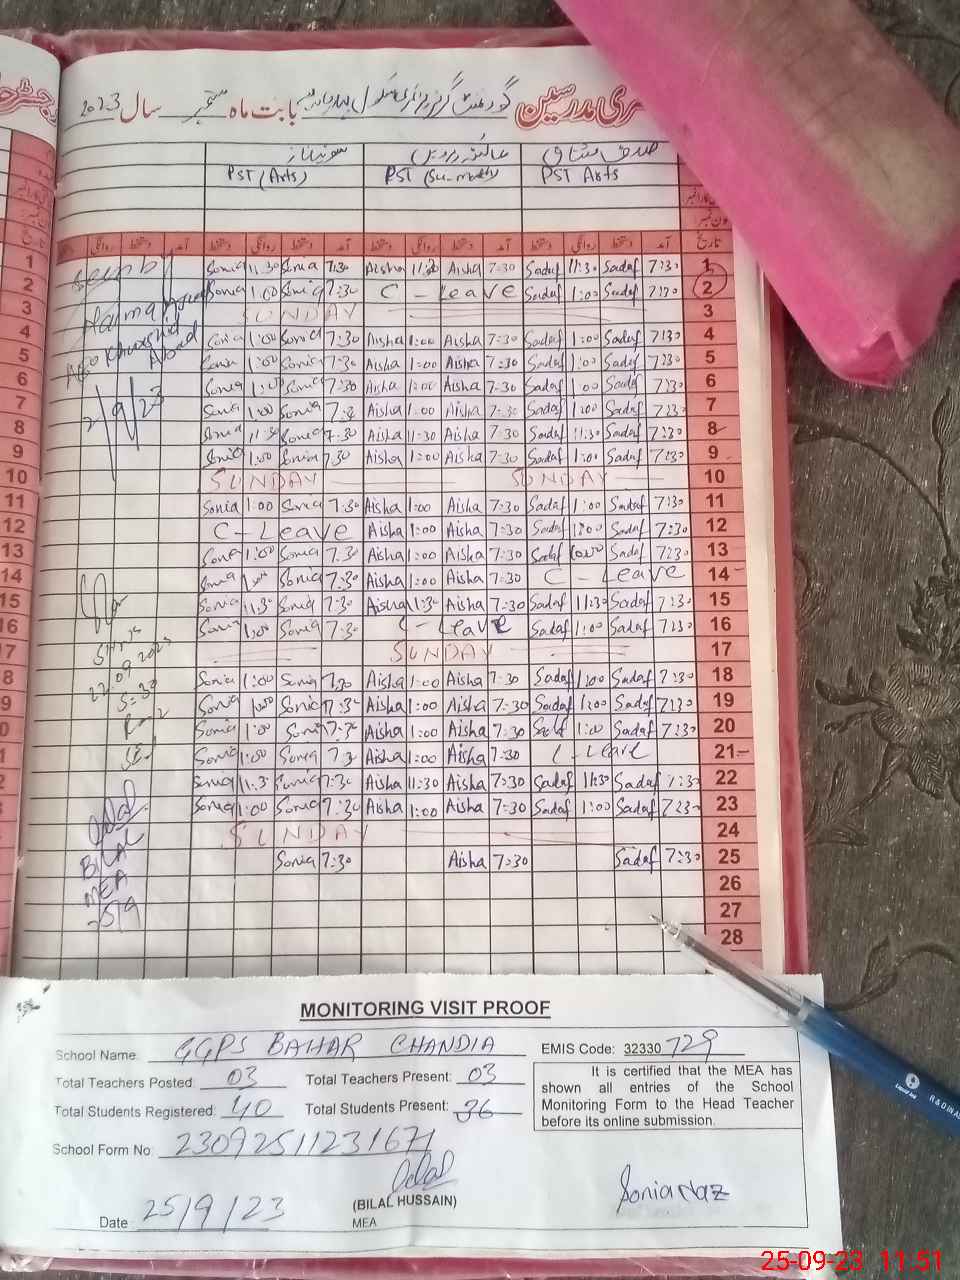 سال 2023 بابت ماه ستمبر گورنمنٹ گرلز پرائمری سکول
ری مدرسین
صدف مشتاق
PST (Arts) PST PST Arts
تاریخ
آمد دستخط روانگی دستخط آمد دستخط روانگی دستخط آمد دستخط روانگی دستخط
Sonia 11:30 Sonia 7:30 Aisha 11:30 Aisha 7:30 Sadaf 11:30 Sadaf 7:30 1
Sonia 1:00 Sonia 7:30 C - Leave Sadaf 1:00 Sadaf 7:30 2
SUNDAY 3
Sonia 1:00 Sonia 7:30 Aisha 1:00 Aisha 7:30 Sadaf 1:00 Sadaf 7:30 4
Sonia 1:00 Sonia 7:30 Aisha 1:00 Aisha 7:30 Sadaf 1:00 Sadaf 7:30 5
Sonia 1:00 Sonia 7:30 Aisha 1:00 Aisha 7:30 Sadaf 1:00 Sadaf 7:30 6
Sonia 1:00 Sonia Aisha 1:00 Aisha 7:30 Sadaf 1:00 Sadaf 7:30 7
Sonia 11:30 Sonia 7:30 Aisha 11:30 Aisha 7:30 Sadaf 11:30 Sadaf 7:30 8
Sonia 1:00 Sonia 7:30 Aisha 1:00 Aisha 7:30 Sadaf 1:00 Sadaf 7:30 9
SUNDAY SUNDAY 10
Sonia 1:00 Sonia 7:30 Aisha 1:00 Aisha 7:30 Sadaf 1:00 Sadaf 7:30 11
C - Leave Aisha 1:00 Aisha 7:30 Sadaf 1:00 Sadaf 7:30 12
Sonia 1:00 Sonia 7:30 Aisha 1:00 Aisha 7:30 Sadaf Sadaf 7:30 13
Sonia Sonia 7:30 Aisha 1:00 Aisha 7:30 C - Leave 14
Sonia 11:30 Sonia 7:30 Aisha 11:30 Aisha 7:30 Sadaf 11:30 Sadaf 7:30 15
Sonia 1:00 Sonia 7:30 C - Leave Sadaf 1:00 Sadaf 7:30 16
SUNDAY 17
Sonia 1:00 Sonia 7:30 Aisha 1:00 Aisha 7:30 Sadaf 1:00 Sadaf 7:30 18
Sonia 1:00 Sonia 7:30 Aisha 1:00 Aisha 7:30 Sadaf 1:00 Sadaf 7:30 19
Sonia 1:00 Sonia 7:30 Aisha 1:00 Aisha 7:30 Sadaf 1:00 Sadaf 7:30 20
Sonia 1:00 Sonia 7:30 Aisha 1:00 Aisha 7:30 C - Leave 21
Sonia 11:30 Sonia 7:30 Aisha 11:30 Aisha 7:30 Sadaf 11:30 Sadaf 7:30 22
Sonia 1:00 Sonia 7:30 Aisha 1:00 Aisha 7:30 Sadaf 1:00 Sadaf 7:30 23
SUNDAY 24
Sonia 7:30 Aisha 7:30 Sadaf 7:30 25
26
27
28
Seen by
Khurshid
Abad
2/9/23
22 09 2023
BILAL
MEA
25/9
MONITORING VISIT PROOF
School Name: GGPS BAHAR CHANDIA EMIS Code: 32330729
Total Teachers Posted: 03 Total Teachers Present: 03
Total Students Registered: 40 Total Students Present: 36
School Form No: 23092511231671
It is certified that the MEA has
shown all entries of the School
Monitoring Form to the Head Teacher
before its online submission.
(BILAL HUSSAIN)
MEA
Sonia Naz
Date: 25/9/23
25-09-23 11:51